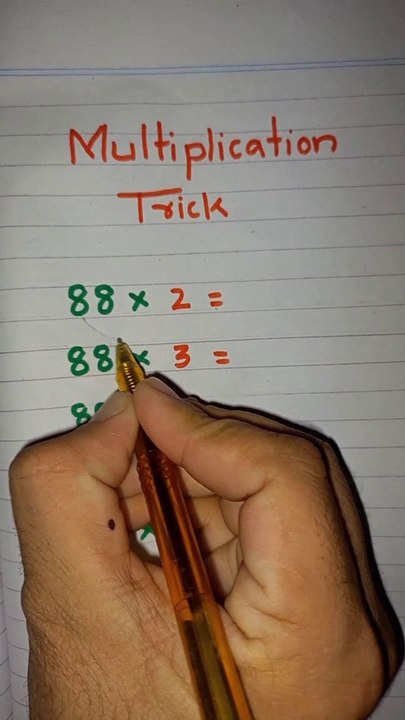 Multiplication
Trick
88 × 2 =
88 × 3 =